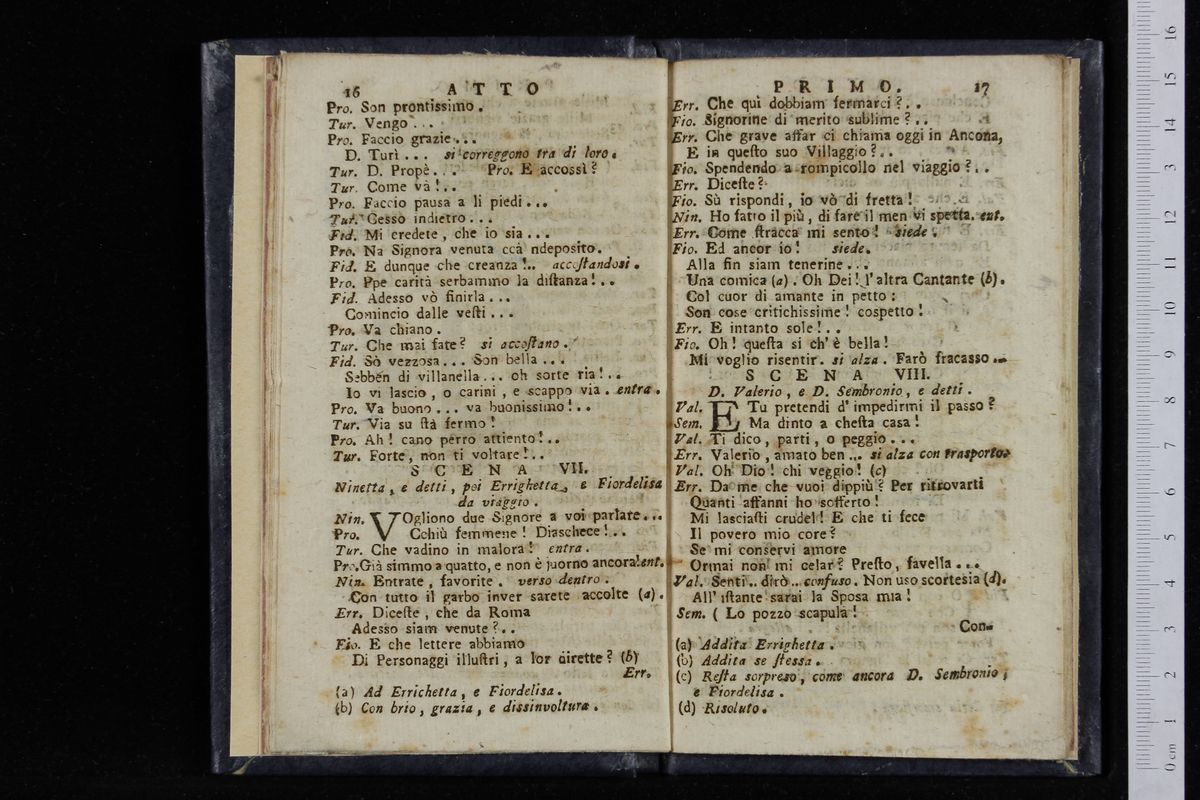 16 ATTO
Pro. Son prontissimo.
Tur. Vengo ...
Pro. Faccio grazie ...
D. Turì ... si correggono tra di loro.
Tur. D. Propè ... Pro. E accossì?
Tur. Come và!..
Pro. Faccio pausa a li piedi ...
Tur. Gesso indietro ...
Fid. Mi credete, che io sia ...
Pro. Na Signora venuta ccà ndeposito.
Fid. E dunque che creanza!.. accoſtandosi.
Pro. Ppe carità serbammo la diſtanza!..
Fid. Adesso vò finirla ...
Comincio dalle veſti ...
Pro. Va chiano.
Tur. Che mai fate? si accoſtano.
Fid. Sò vezzosa ... Son bella ...
Sebben di villanella ... oh sorte ria!..
Io vi lascio, o carini, e scappo via. entra.
Pro. Va buono ... va buonissimo!..
Tur. Via su ſtà fermo!
Pro. Ah! cano perro attiento!..
Tur. Forte, non ti voltare!..
SCENA VII.
Ninetta, e detti, poi Errighetta, e Fiordelisa
da viaggio.
Nin. VOgliono due Signore a voi parlare ...
Pro. Cchiù femmene! Diaschece!..
Tur. Che vadino in malora! entra.
Pro. Già simmo a quatto, e non è juorno ancora! ent.
Nin. Entrate, favorite. verso dentro.
Con tutto il garbo inver sarete accolte (a).
Err. Diceſte, che da Roma
Adesso siam venute?..
Fio. E che lettere abbiamo
Di Personaggi illuſtri, a lor dirette? (b)
Err.
(a) Ad Errichetta, e Fiordelisa.
(b) Con brio, grazia, e dissinvoltura.
PRIMO. 17
Err. Che quì dobbiam fermarci?..
Fio. Signorine di merito sublime?..
Err. Che grave affar ci chiama oggi in Ancona,
E in queſto suo Villaggio?..
Fio. Spendendo a rompicollo nel viaggio?..
Err. Diceſte?
Fio. Sù rispondi, io vò di fretta!
Nin. Ho fatto il più, di fare il men vi spetta. ent.
Err. Come ſtracca mi sento! siede.
Fio. Ed ancor io! siede.
Alla fin siam tenerine ...
Una comica (a). Oh Dei! l'altra Cantante (b).
Col cuor di amante in petto:
Son cose critichissime! cospetto!
Err. E intanto sole!..
Fio. Oh! queſta si ch'è bella!
Mi voglio risentir. si alza. Farò fracasso ...
SCENA VIII.
D. Valerio, e D. Sembronio, e detti.
Val. E Tu pretendi d'impedirmi il passo?
Sem. Ma dinto a cheſta casa!
Val. Ti dico, parti, o peggio ...
Err. Valerio, amato ben ... si alza con trasporto.
Val. Oh Dio! chi veggio! (c)
Err. Da me che vuoi dippiù? Per ritrovarti
Quanti affanni ho sofferto!
Mi lasciaſti crudel! E che ti fece
Il povero mio core?
Se mi conservi amore
Ormai non mi celar? Preſto, favella ...
Val. Senti .. dirò .. confuso. Non uso scortesia (d).
All'iſtante sarai la Sposa mia!
Sem. ( Lo pozzo scapulà!
Con-
(a) Addita Errighetta.
(b) Addita se ſtessa.
(c) Reſta sorpreso, come ancora D. Sembronio,
e Fiordelisa.
(d) Risoluto.
0 cm 1 2 3 4 5 6 7 8 9 10 11 12 13 14 15 16